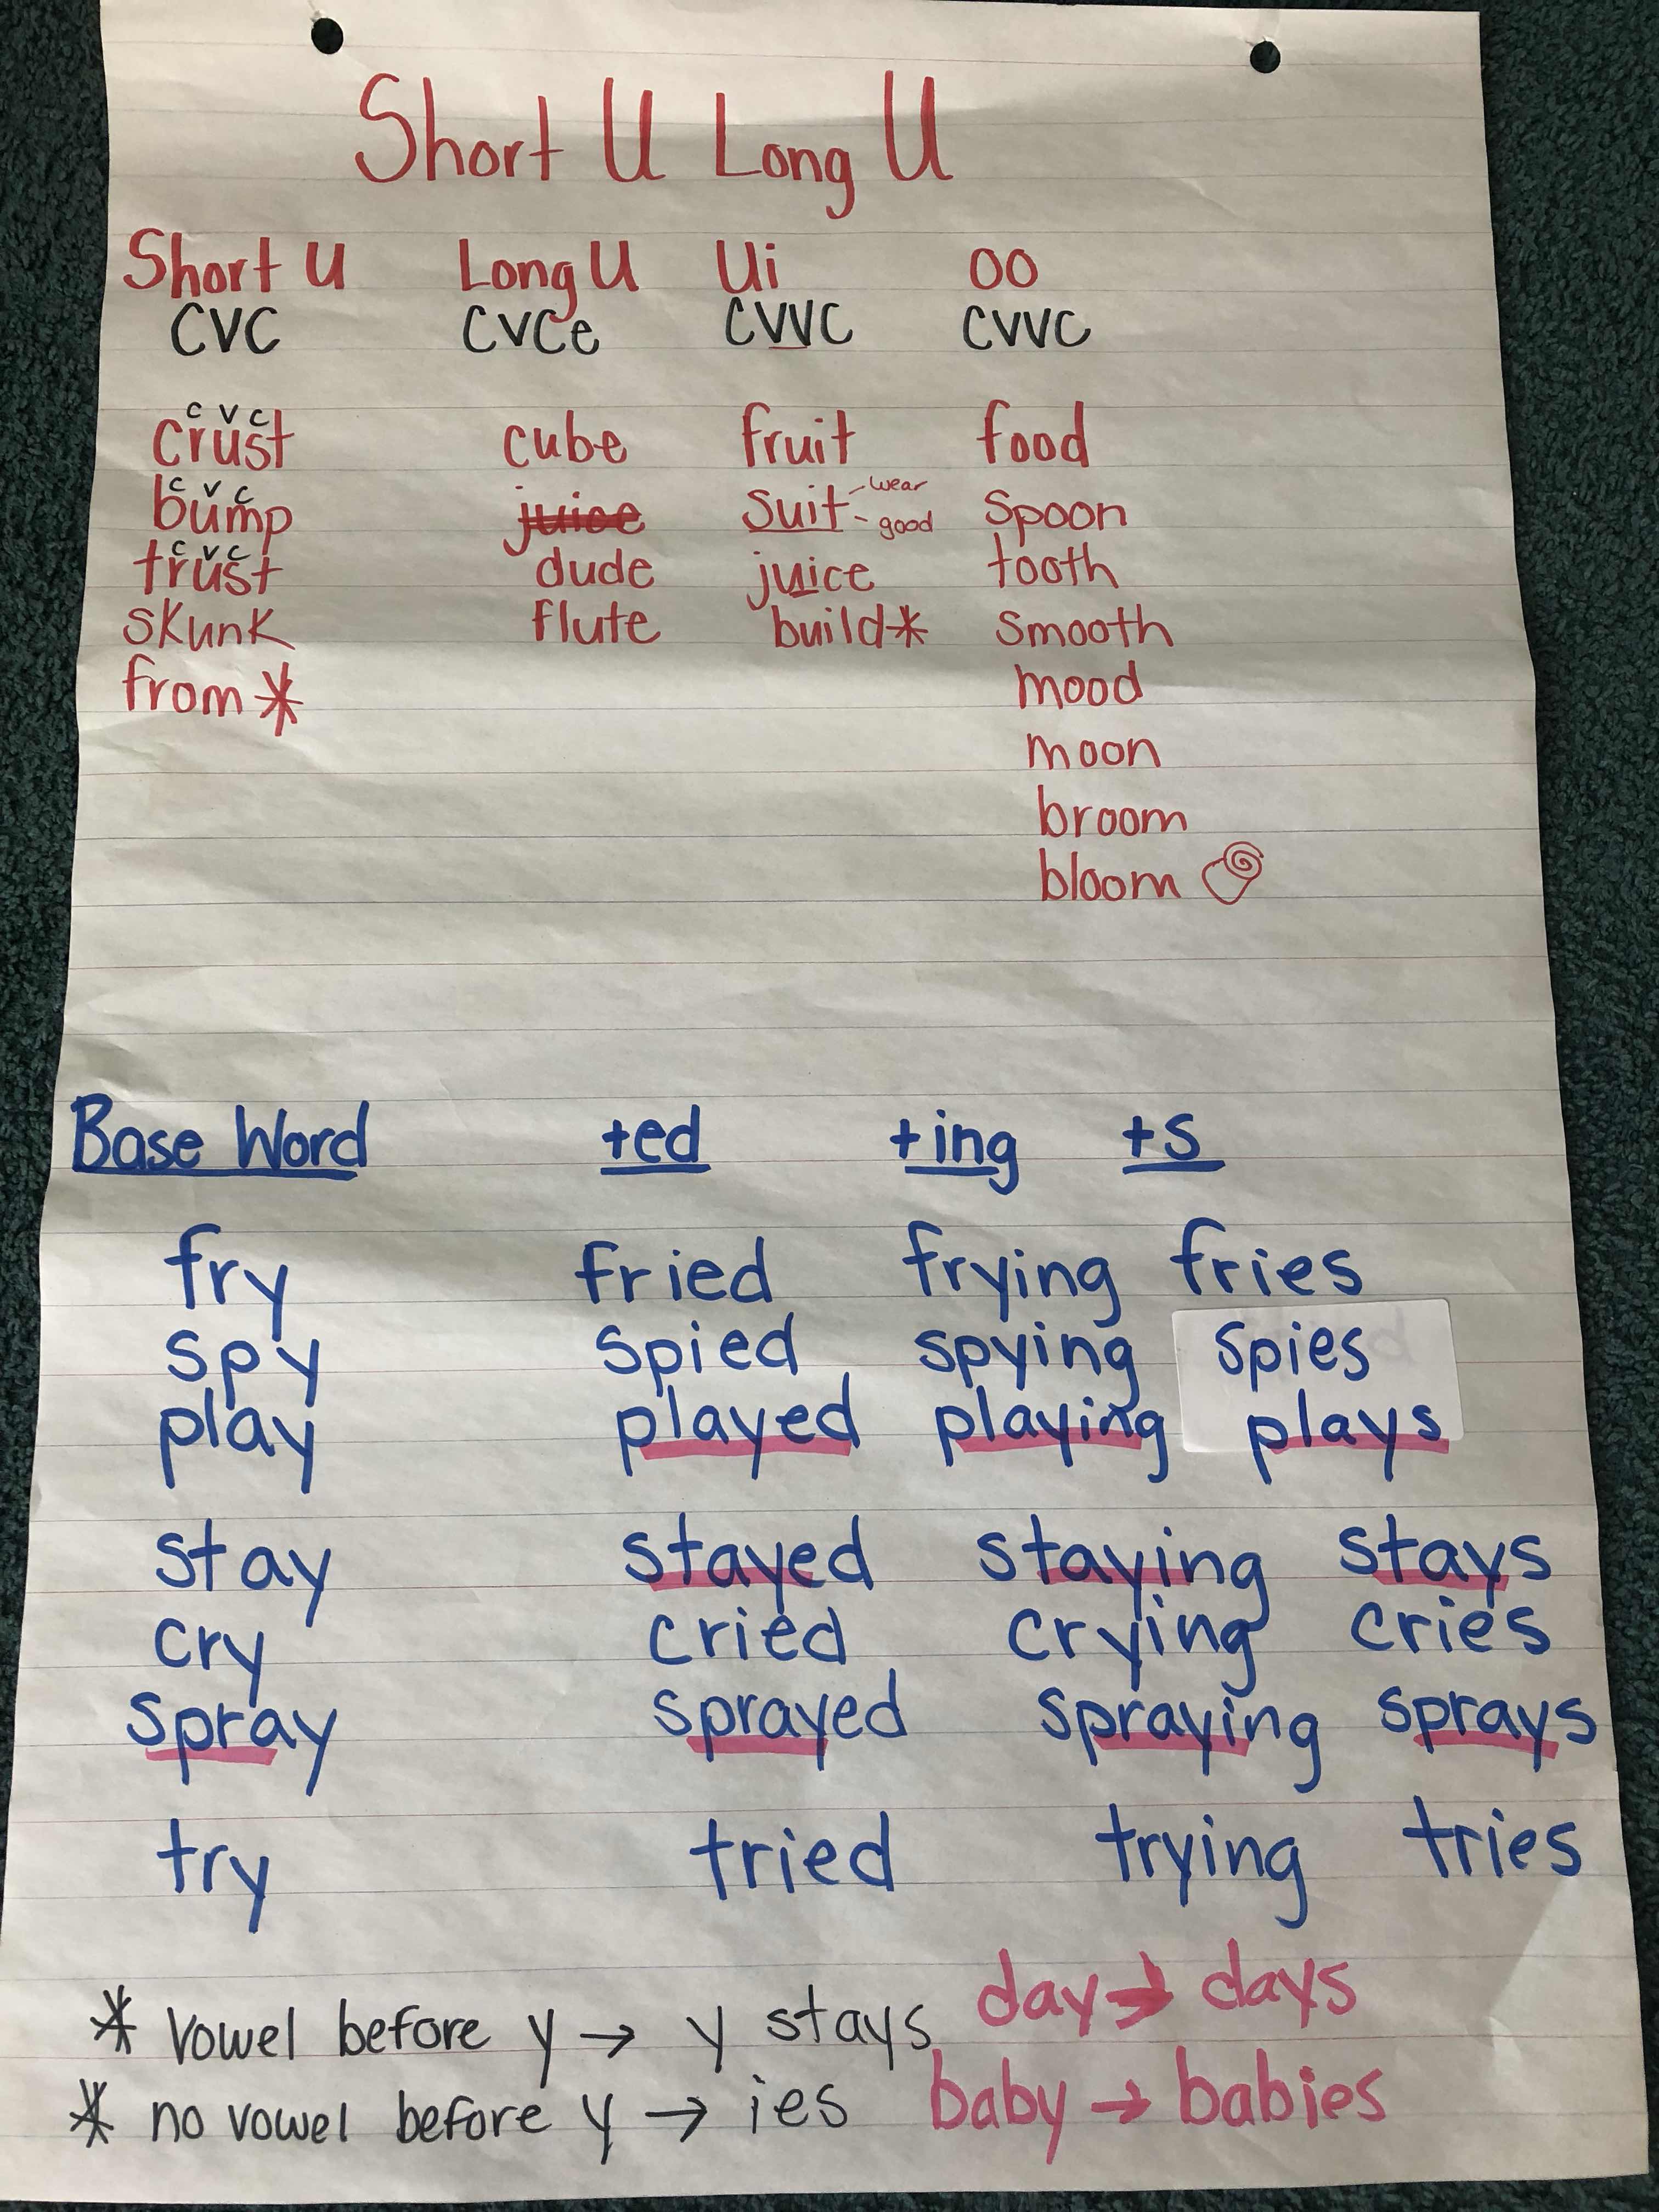 Short U Long U
Short U Long U Ui OO
CVC CVCe CVVC CVVC
c v c
crust cube fruit food
c v c
bump juice suit - wear - good spoon
c v c
trust dude juice tooth
skunk flute build* smooth
from * mood
moon
broom
bloom
Base Word +ed +ing +s
fry fried frying fries
spy spied spying spies
play played playing plays
stay stayed staying stays
cry cried crying cries
spray sprayed spraying sprays
try tried trying tries
* vowel before y → y stays day → days
* no vowel before y → ies baby → babies